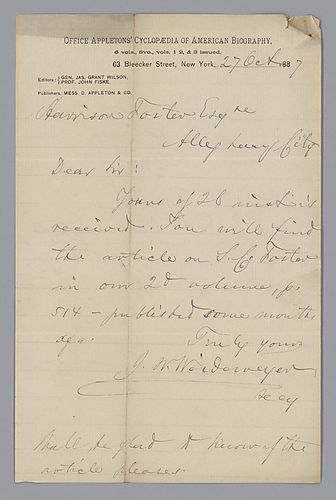 OFFICE APPLETONS' CYCLOPÆDIA OF AMERICAN BIOGRAPHY,
6 vols., 8vo., vols. 1 2, & 3 issued.
63 Bleecker Street, New York, 27 Oct 1887
Editors: GEN. JAS. GRANT WILSON,
PROF. JOHN FISKE.
Publishers, MESS. D. APPLETON & CO.
Harrison Foster Esqre
Allegheny City
Dear Sir:
Yours of 26 inst is
received. You will find
the article on S. C. Foster
in our 2d volume, p.
514 - published some months
ago.
Truly yours
J. W. Weidemeyer
Secy
Shall be glad to know if the
article pleases.